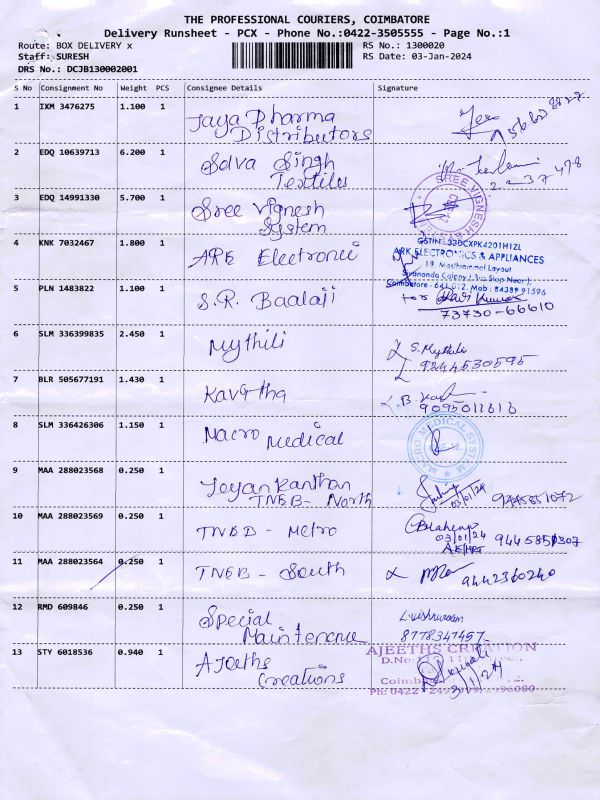 THE PROFESSIONAL COURIERS, COIMBATORE
Delivery Runsheet - PCX - Phone No.:0422-3505555 - Page No.:1
Route: BOX DELIVERY x
RS No.: 1300020
Staff: SURESH
RS Date: 03-Jan-2024
DRS No.: DCJB130002001
S No Consignment No Weight PCS Consignee Details Signature
1 IXM 3476275 1.100 1 Jaya Pharma
Distributors
2 EDQ 10639713 6.200 1 Selva Singh
Textiles
3 EDQ 14991330 5.700 1 Sree Vignesh
System
SREE VIGNESH
4 KNK 7032467 1.800 1 ARK Electronic
GSTIN: 33DCXPK4201H1ZL
ARK ELECTRONICS & APPLIANCES
Coimbatore - 641 012. Mob: 84389 91596
5 PLN 1483822 1.100 1 S.R. Baalaji
for
73730-66610
6 SLM 336399835 2.450 1 Mythili
S. Mythili
9244530595
7 BLR 505677191 1.430 1 Kavitha
8 SLM 336426306 1.150 1 Macro Medical
MACRO MEDICAL SYSTEM
9 MAA 288023568 0.250 1 Jeyankanthan
TNEB- North
03/01/24
9445851072
10 MAA 288023569 0.250 1 TNEB - Metro
03/01/24
11 MAA 288023564 0.250 1 TNEB - South
9442360240
12 RMD 609846 0.250 1 Special
Maintenence
8778347457
13 STY 6018536 0.940 1 Ajeeths
Creations
AJEETHS CREATION
D.No
3/1/24